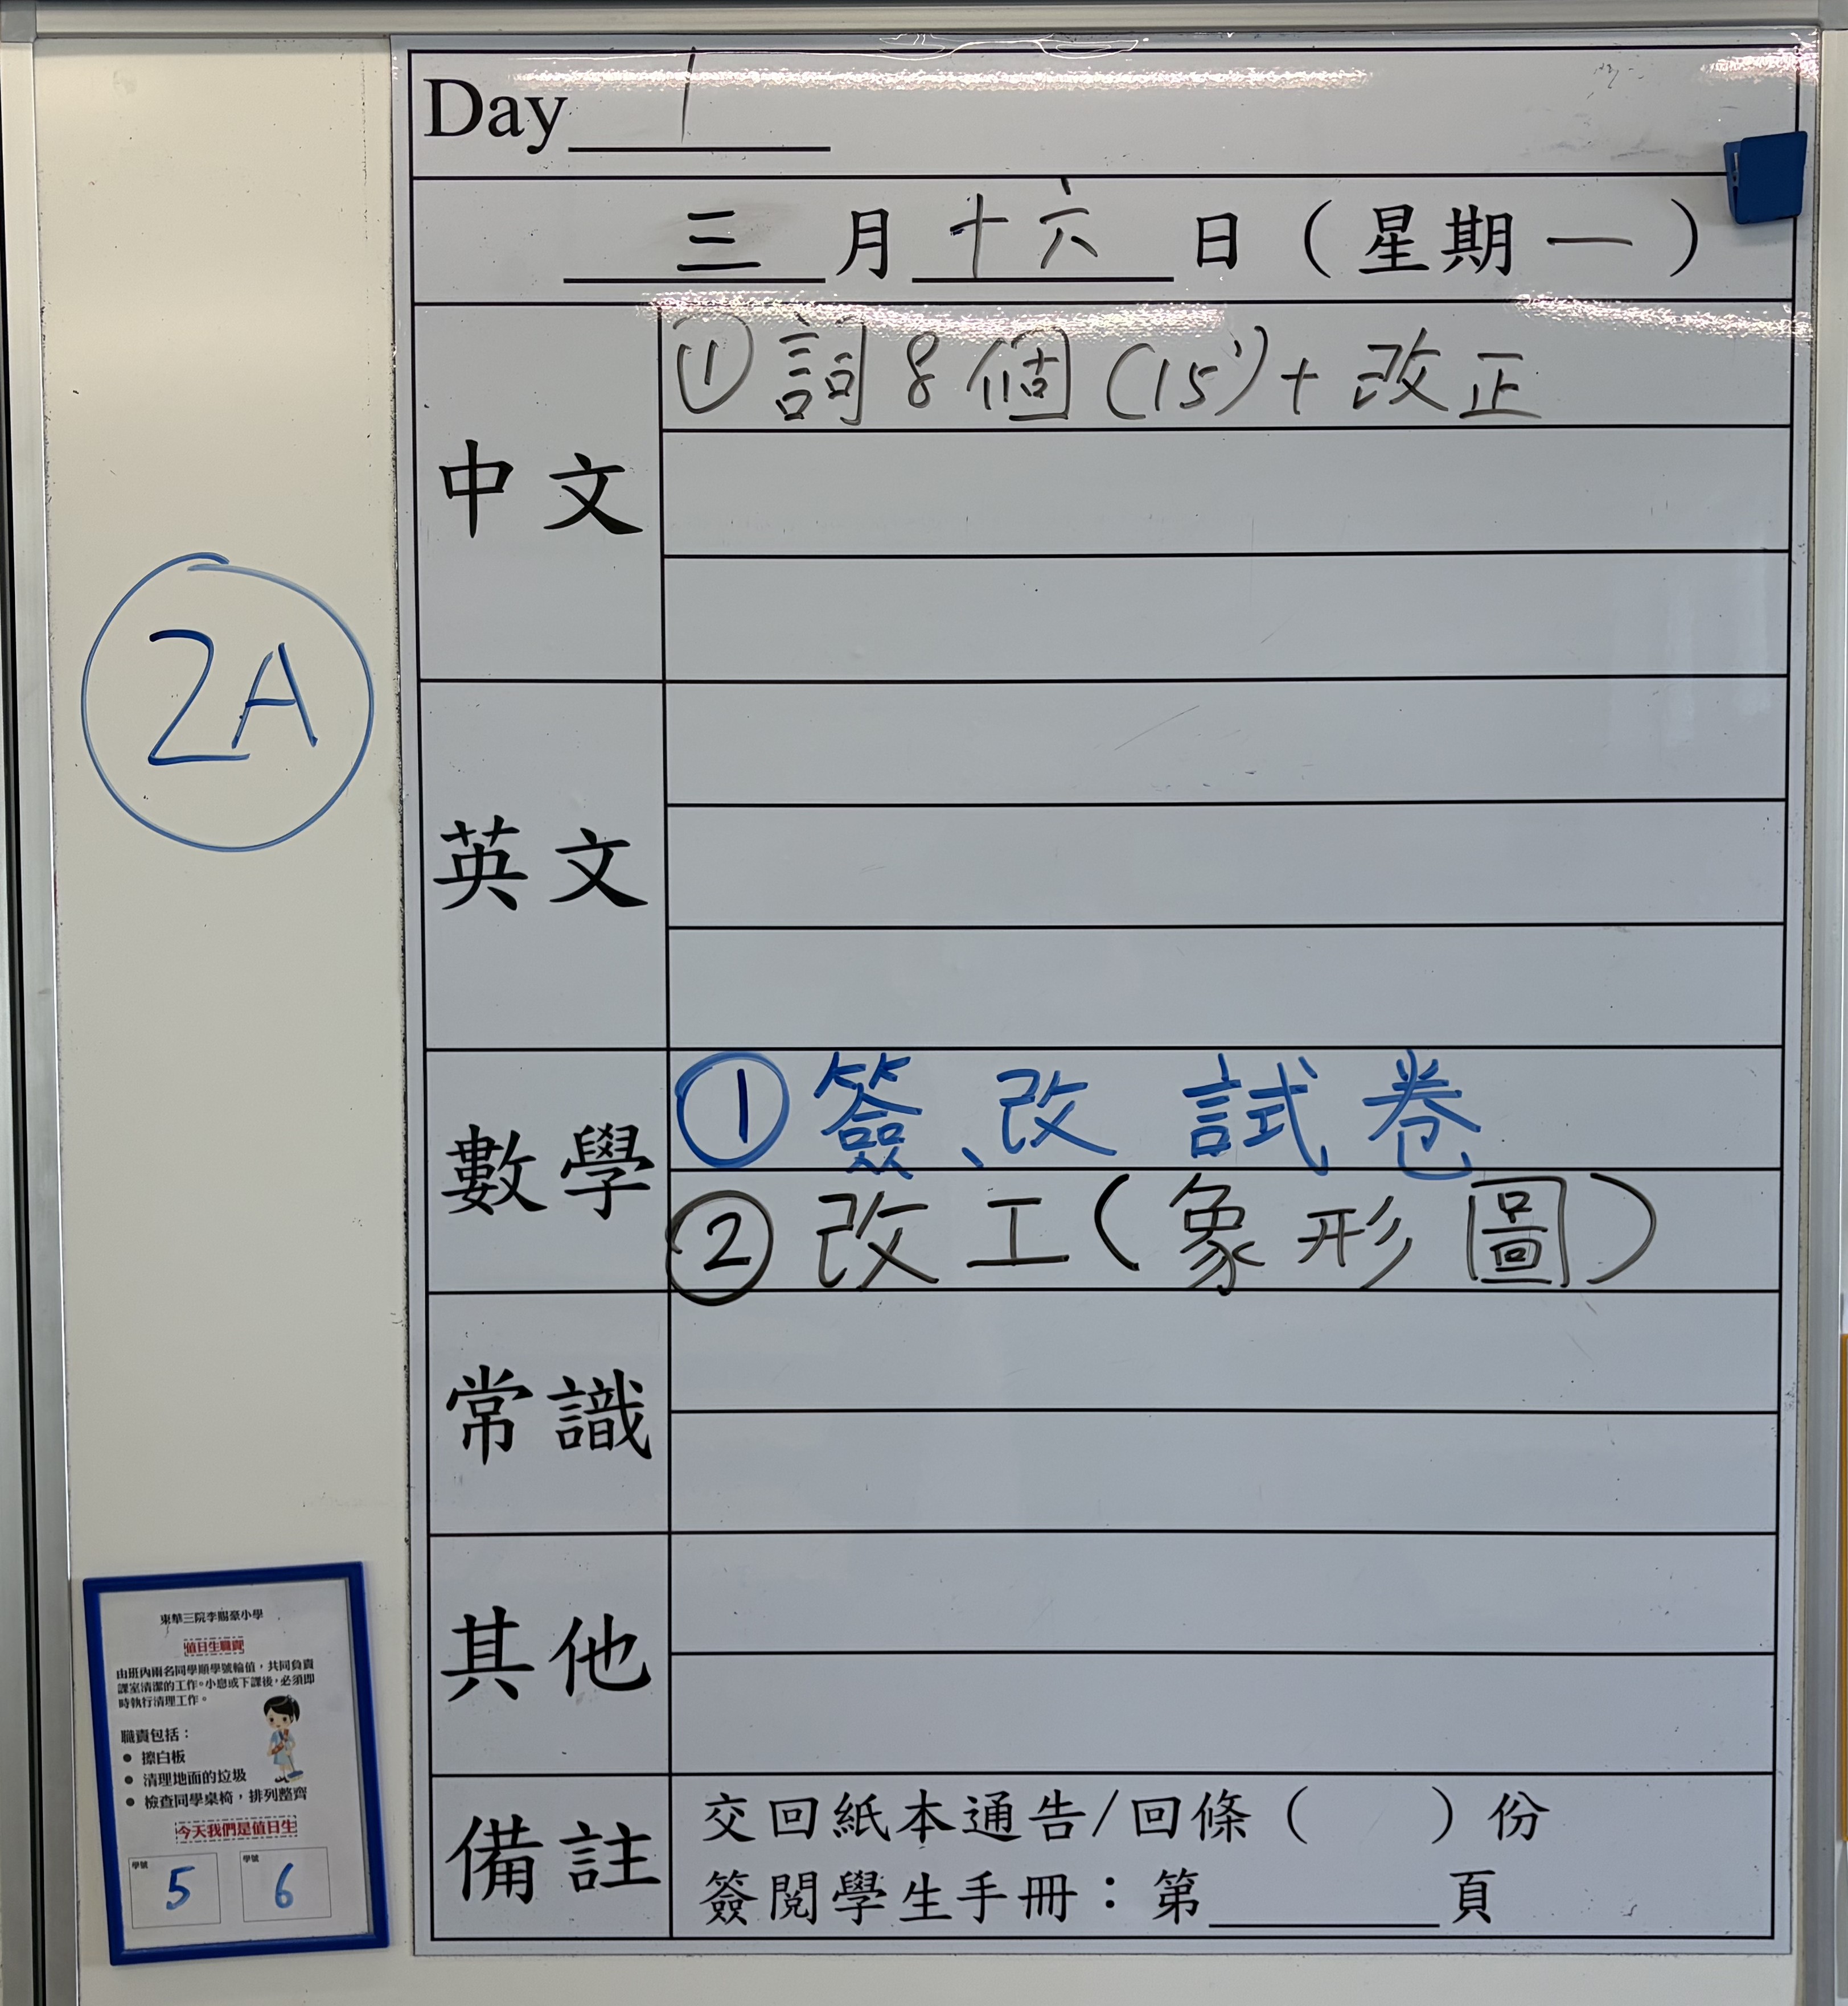 Day 1
三月十六日(星期一)
中文
①詞8個(15')+改正
2A
英文
數學
①簽、改 試卷
②改工(象形圖)
常識
其他
備註
交回紙本通告/回條( )份
簽閱學生手冊:第____頁
東華三院李賜豪小學
值日生職責
由班內兩名同學順學號輪值,共同負責
課室清潔的工作。小息或下課後,必須即
時執行清理工作。
職責包括:
● 擦白板
● 清理地面的垃圾
● 檢查同學桌椅,排列整齊
今天我們是值日生
學號 學號
5 6